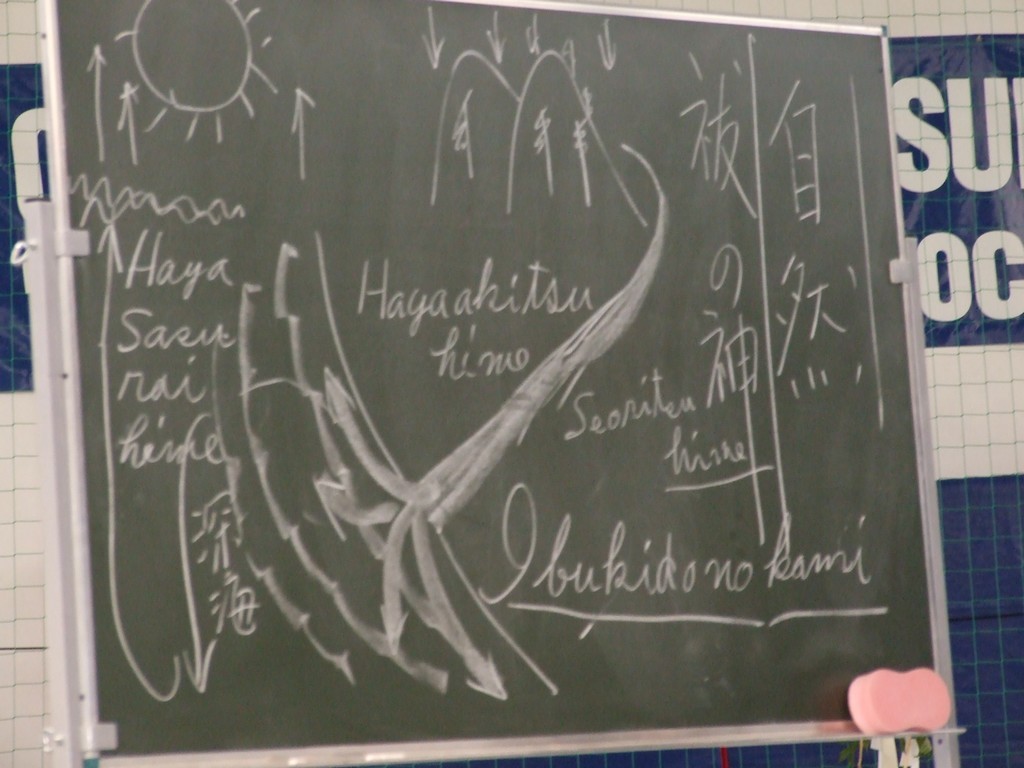 自然
祓の神
Hayaakitsu
hime
Seoritsu
hime
Haya
Sasu
rai
hime
深海
Ibukido no kami
SU
OC